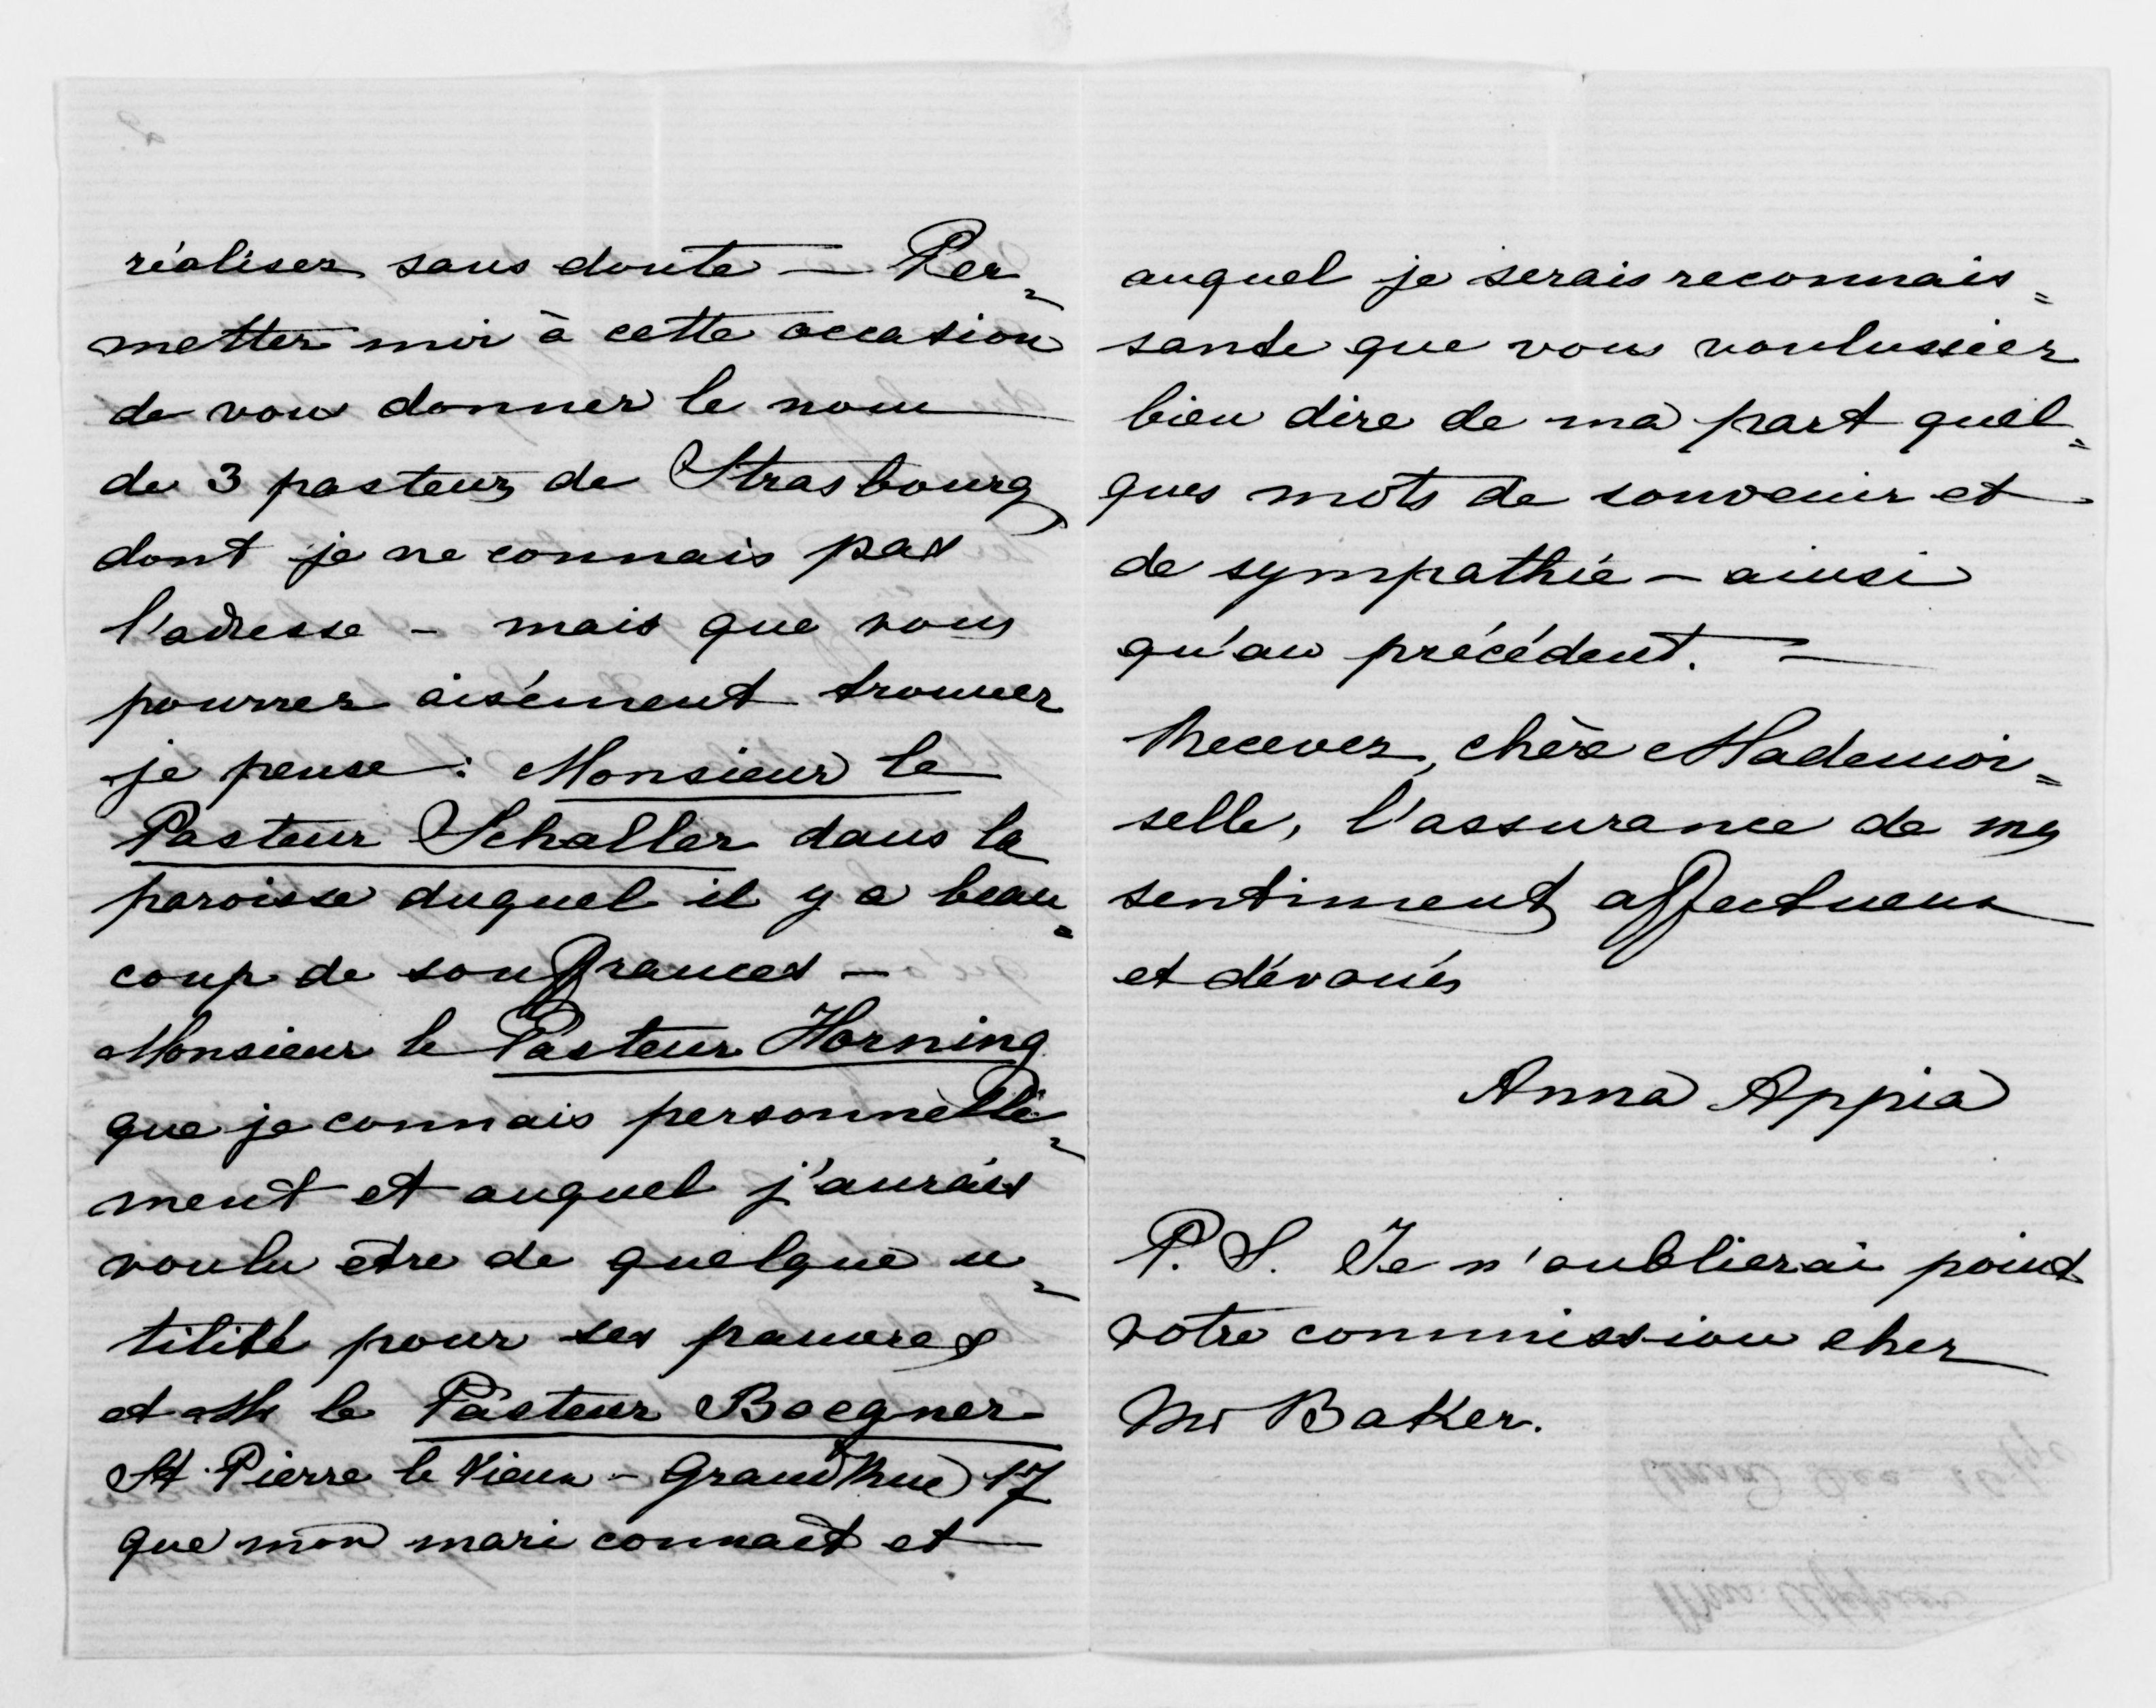 réaliser sans doute — Per=
mettez moi à cette occasion
de vous donner le nom
de 3 pasteurs de Strasbourg
dont je ne connais pas
l'adresse - mais que vous
pourrez aisément trouver
je pense : Monsieur le
Pasteur Schaller dans la
paroisse duquel il y a beau=
coup de souffrances -
Monsieur le Pasteur Horning
que je connais personnelle=
ment et auquel j'aurais
voulu être de quelque u=
tilité pour ses pauvres
et Mr le Pasteur Boegner
St. Pierre le Vieux - Grand Rue 17
que mon mari connait et
auquel je serais reconnais=
sante que vous voulussiez
bien dire de ma part quel=
ques mots de souvenir et
de sympathie - ainsi
qu'au précédent. —
Recevez, chère Mademoi=
selle, l'assurance de mes
sentiments affectueux
et dévoués
Anna Appia
P. S. Je n'oublierai point
votre commission chez
Mr Baker.